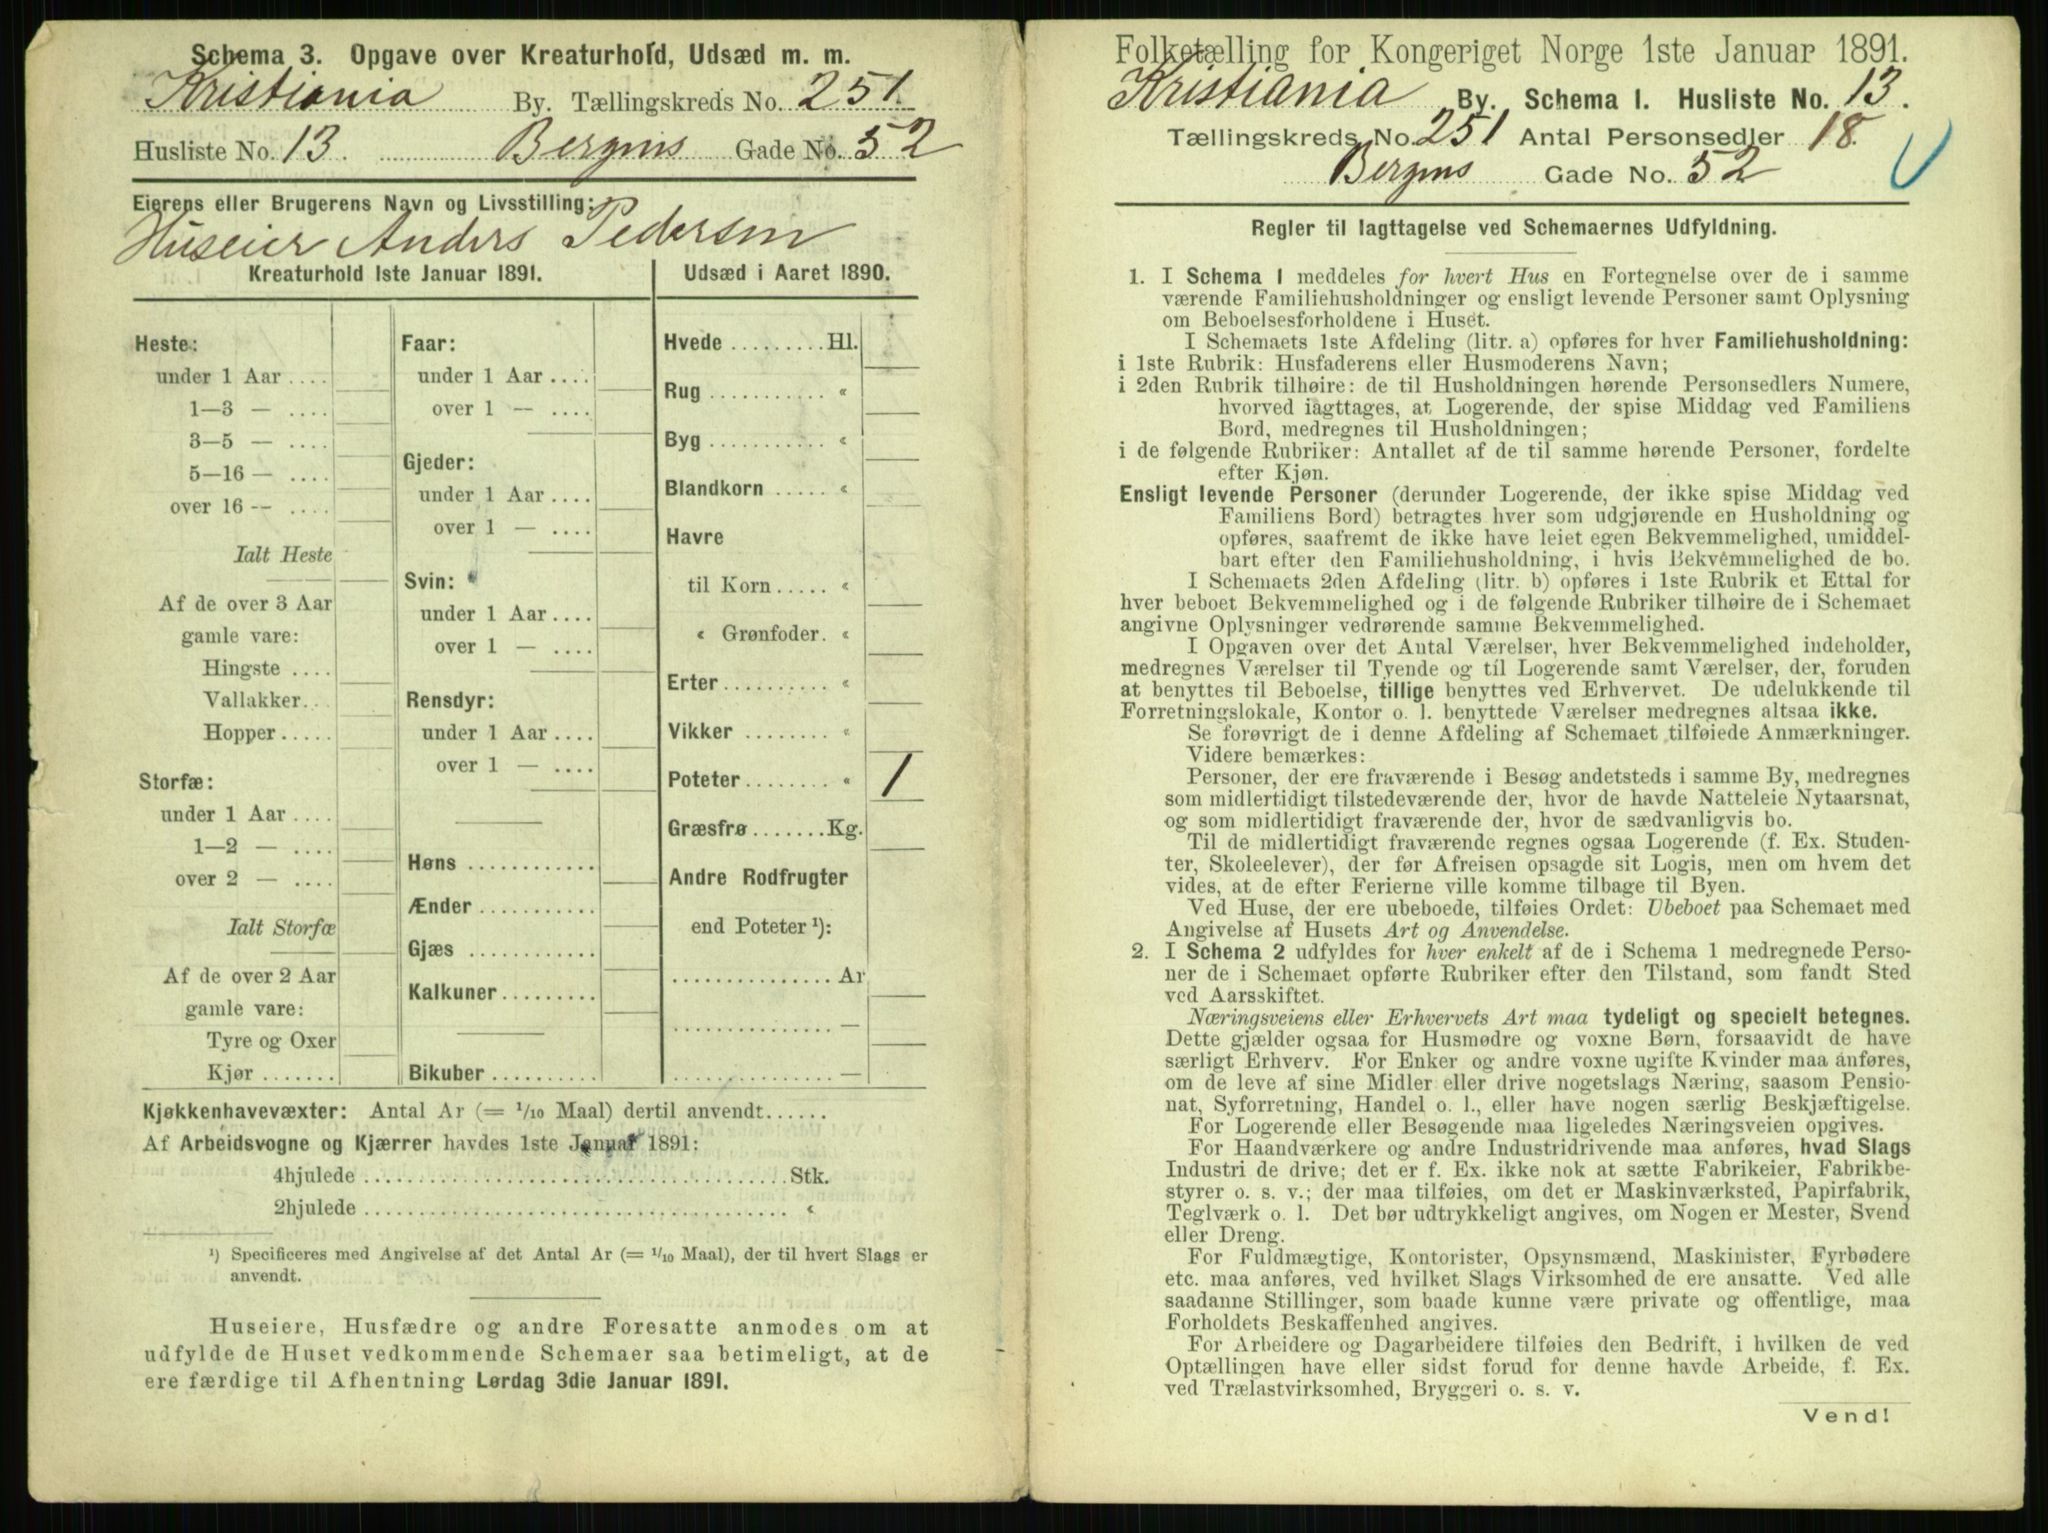 Schema 3. Opgave over Kreaturhold, Udsæd m. m.
Kristiania By. Tællingskreds No. 251.
Husliste No. 13. Bergens Gade No. 52
Eierens eller Brugerens Navn og Livsstilling:
Huseier Anders Pedersen
Kreaturhold 1ste Januar 1891.
Heste:
under 1 Aar ....
1—3 — ....
3—5 — ....
5—16 — ....
over 16 — ....
Ialt Heste
Af de over 3 Aar
gamle vare:
Hingste ....
Vallakker...
Hopper .....
Storfæ:
under 1 Aar ....
1—2 — ....
over 2 — ....
Ialt Storfæ
Af de over 2 Aar
gamle vare:
Tyre og Oxer
Kjør .......
Faar:
under 1 Aar ....
over 1 — ....
Gjeder:
under 1 Aar ....
over 1 — ....
Svin:
under 1 Aar ....
over 1 — ....
Rensdyr:
under 1 Aar ....
over 1 — ....
Høns ............
Ænder ...........
Gjæs ............
Kalkuner.........
Bikuber ..........
Udsæd i Aaret 1890.
Hvede .........Hl.
Rug ........... «
Byg ........... «
Blandkorn ..... «
Havre
til Korn..... «
« Grønfoder. «
Erter.......... «
Vikker ........ «
Poteter........ « 1
Græsfrø .......Kg.
Andre Rodfrugter
end Poteter ¹):
............... Ar
............... —
............... —
Kjøkkenhavevæxter: Antal Ar (= 1/10 Maal) dertil anvendt......
Af Arbeidsvogne og Kjærrer havdes 1ste Januar 1891:
4hjulede ........................................Stk.
2hjulede ........................................ «
¹) Specificeres med Angivelse af det Antal Ar (= 1/10 Maal), der til hvert Slags er
anvendt.
Huseiere, Husfædre og andre Foresatte anmodes om at
udfylde de Huset vedkommende Schemaer saa betimeligt, at de
ere færdige til Afhentning Lørdag 3die Januar 1891.
Folketælling for Kongeriget Norge 1ste Januar 1891.
Kristiania By. Schema 1. Husliste No. 13.
Tællingskreds No. 251 Antal Personsedler 18.
Bergens Gade No. 52
Regler til Iagttagelse ved Schemaernes Udfyldning.
1. I Schema 1 meddeles for hvert Hus en Fortegnelse over de i samme
værende Familiehusholdninger og ensligt levende Personer samt Oplysning
om Beboelsesforholdene i Huset.
I Schemaets 1ste Afdeling (litr. a) opføres for hver Familiehusholdning:
i 1ste Rubrik: Husfaderens eller Husmoderens Navn;
i 2den Rubrik tilhøire: de til Husholdningen hørende Personsedlers Numere,
hvorved iagttages, at Logerende, der spise Middag ved Familiens
Bord, medregnes til Husholdningen;
i de følgende Rubriker: Antallet af de til samme hørende Personer, fordelte
efter Kjøn.
Ensligt levende Personer (derunder Logerende, der ikke spise Middag ved
Familiens Bord) betragtes hver som udgjørende en Husholdning og
opføres, saafremt de ikke have leiet egen Bekvemmelighed, umiddel-
bart efter den Familiehusholdning, i hvis Bekvemmelighed de bo.
I Schemaets 2den Afdeling (litr. b) opføres i 1ste Rubrik et Ettal for
hver beboet Bekvemmelighed og i de følgende Rubriker tilhøire de i Schemaet
angivne Oplysninger vedrørende samme Bekvemmelighed.
I Opgaven over det Antal Værelser, hver Bekvemmelighed indeholder,
medregnes Værelser til Tyende og til Logerende samt Værelser, der, foruden
at benyttes til Beboelse, tillige benyttes ved Erhvervet. De udelukkende til
Forretningslokale, Kontor o. l. benyttede Værelser medregnes altsaa ikke.
Se forøvrigt de i denne Afdeling af Schemaet tilføiede Anmærkninger.
Videre bemærkes:
Personer, der ere fraværende i Besøg andetsteds i samme By, medregnes
som midlertidigt tilstedeværende der, hvor de havde Natteleie Nytaarsnat,
og som midlertidigt fraværende der, hvor de sædvanligvis bo.
Til de midlertidigt fraværende regnes ogsaa Logerende (f. Ex. Studen-
ter, Skoleelever), der før Afreisen opsagde sit Logis, men om hvem det
vides, at de efter Ferierne ville komme tilbage til Byen.
Ved Huse, der ere ubeboede, tilføies Ordet: Ubeboet paa Schemaet med
Angivelse af Husets Art og Anvendelse.
2. I Schema 2 udfyldes for hver enkelt af de i Schema 1 medregnede Perso-
ner de i Schemaet opførte Rubriker efter den Tilstand, som fandt Sted
ved Aarsskiftet.
Næringsveiens eller Erhvervets Art maa tydeligt og specielt betegnes.
Dette gjælder ogsaa for Husmødre og voxne Børn, forsaavidt de have
særligt Erhverv. For Enker og andre voxne ugifte Kvinder maa anføres,
om de leve af sine Midler eller drive nogetslags Næring, saasom Pensio-
nat, Syforretning, Handel o. l., eller have nogen særlig Beskjæftigelse.
For Logerende eller Besøgende maa ligeledes Næringsveien opgives.
For Haandværkere og andre Industridrivende maa anføres, hvad Slags
Industri de drive; det er f. Ex. ikke nok at sætte Fabrikeier, Fabrikbe-
styrer o. s. v.; der maa tilføies, om det er Maskinværksted, Papirfabrik,
Teglværk o. l. Det bør udtrykkeligt angives, om Nogen er Mester, Svend
eller Dreng.
For Fuldmægtige, Kontorister, Opsynsmænd, Maskinister, Fyrbødere
etc. maa anføres, ved hvilket Slags Virksomhed de ere ansatte. Ved alle
saadanne Stillinger, som baade kunne være private og offentlige, maa
Forholdets Beskaffenhed angives.
For Arbeidere og Dagarbeidere tilføies den Bedrift, i hvilken de ved
Optællingen have eller sidst forud for denne havde Arbeide, f. Ex.
ved Trælastvirksomhed, Bryggeri o. s. v.
Vend!